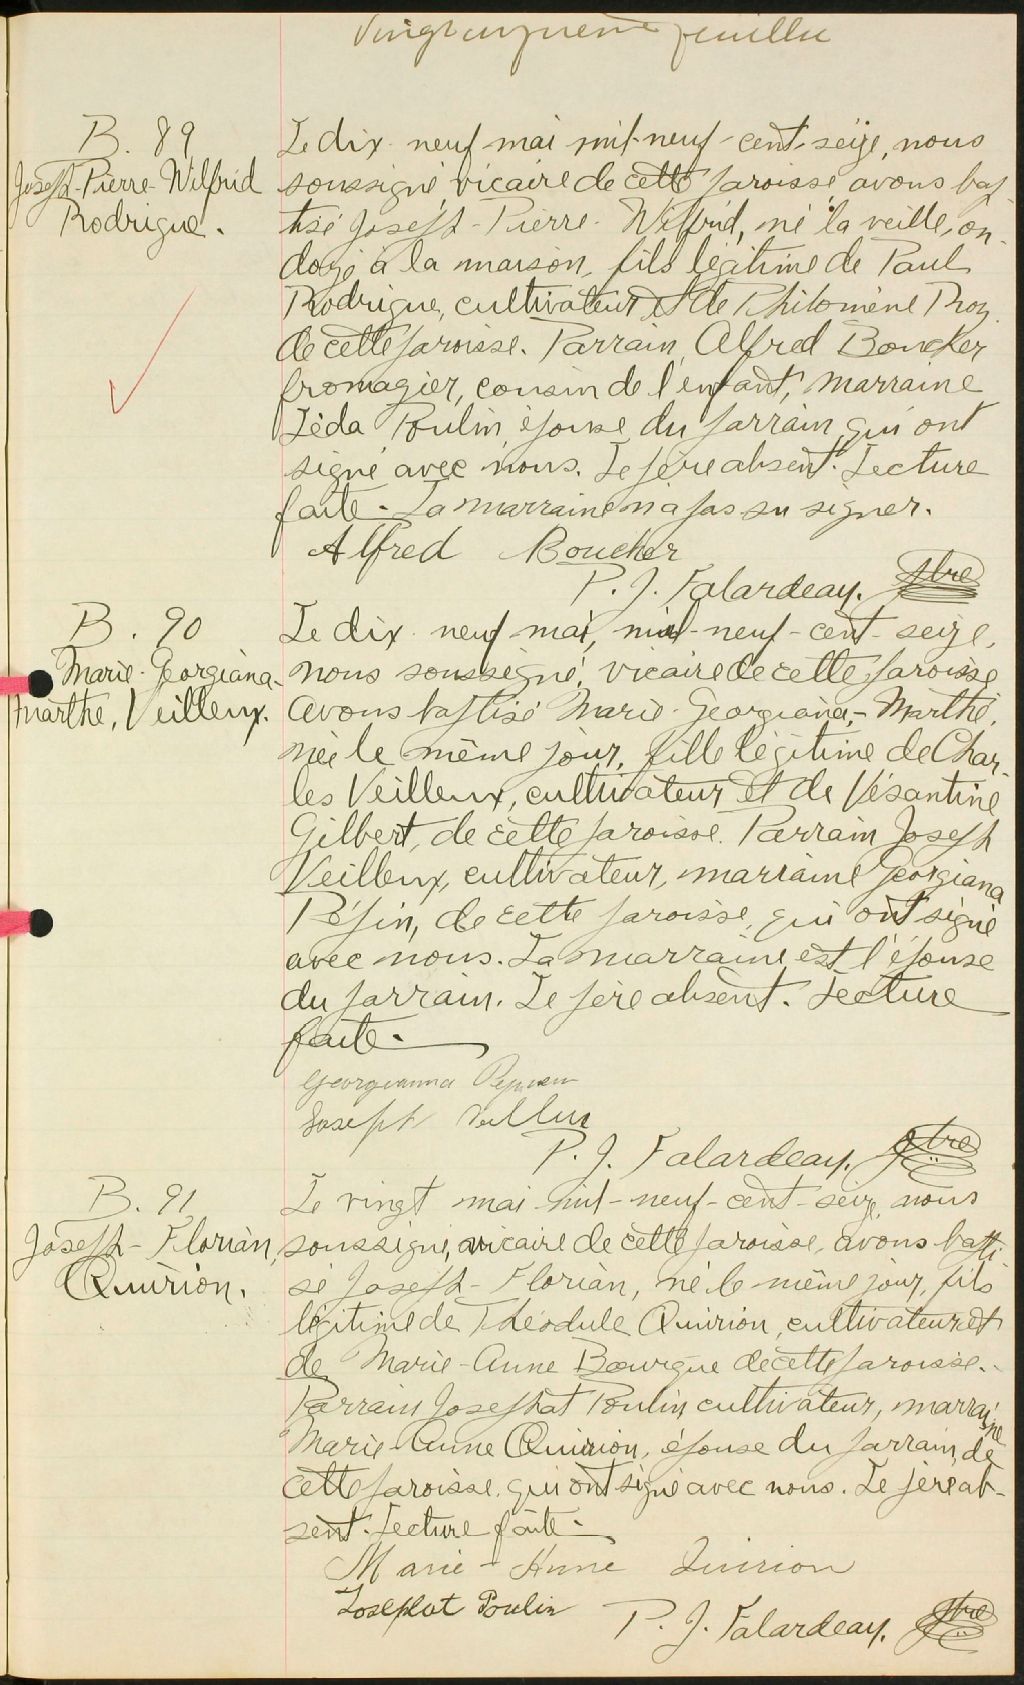 feuillet
B. 89
Joseph-Pierre-Wilfrid
Rodrigue.
Le dix-neuf mai mil-neuf-cent-seize, nous
soussigné vicaire de cette paroisse avons bap-
tisé Joseph-Pierre-Wilfrid, né la veille, on-
doyé à la maison, fils légitime de Paul
Rodrigue, cultivateur et de Philomène Roy
de cette paroisse. Parrain, Alfred Boucher
fromagier, cousin de l'enfant, marraine
Léda Poulin, épouse du parrain, qui ont
signé avec nous. Le père absent. Lecture
faite. La marraine n'a pas su signer.
Alfred Boucher
P. J. Falardeau, ptre
B. 90
Marie-Georgiana-
Marthe, Veilleux.
Le dix-neuf mai, mil-neuf-cent-seize,
nous soussigné, vicaire de cette paroisse
avons baptisé Marie-Georgiana-Marthe,
née le même jour, fille légitime de Char-
les Veilleux, cultivateur et de Vésantine
Gilbert, de cette paroisse. Parrain Joseph
Veilleux, cultivateur, marraine Georgiana
Pépin, de cette paroisse, qui ont signé
avec nous. La marraine est l'épouse
du parrain. Le père absent. Lecture
faite.
Georgianna
Joseph
P. J. Falardeau, ptre
B. 91
Joseph-Florian,
Quirion.
Le vingt mai mil-neuf-cent-seize, nous
soussigné, vicaire de cette paroisse, avons bapti-
sé Joseph-Florian, né le même jour, fils
légitime de Théodule Quirion, cultivateur et
de Marie-Anne Bourque de cette paroisse.
Parrain Josephat Poulin, cultivateur, marraine
Marie-Anne Quirion, épouse du parrain, de
cette paroisse, qui ont signé avec nous. Le père ab-
sent. Lecture faite.
Marie-Anne Quirion
Josephat Poulin
P. J. Falardeau, ptre